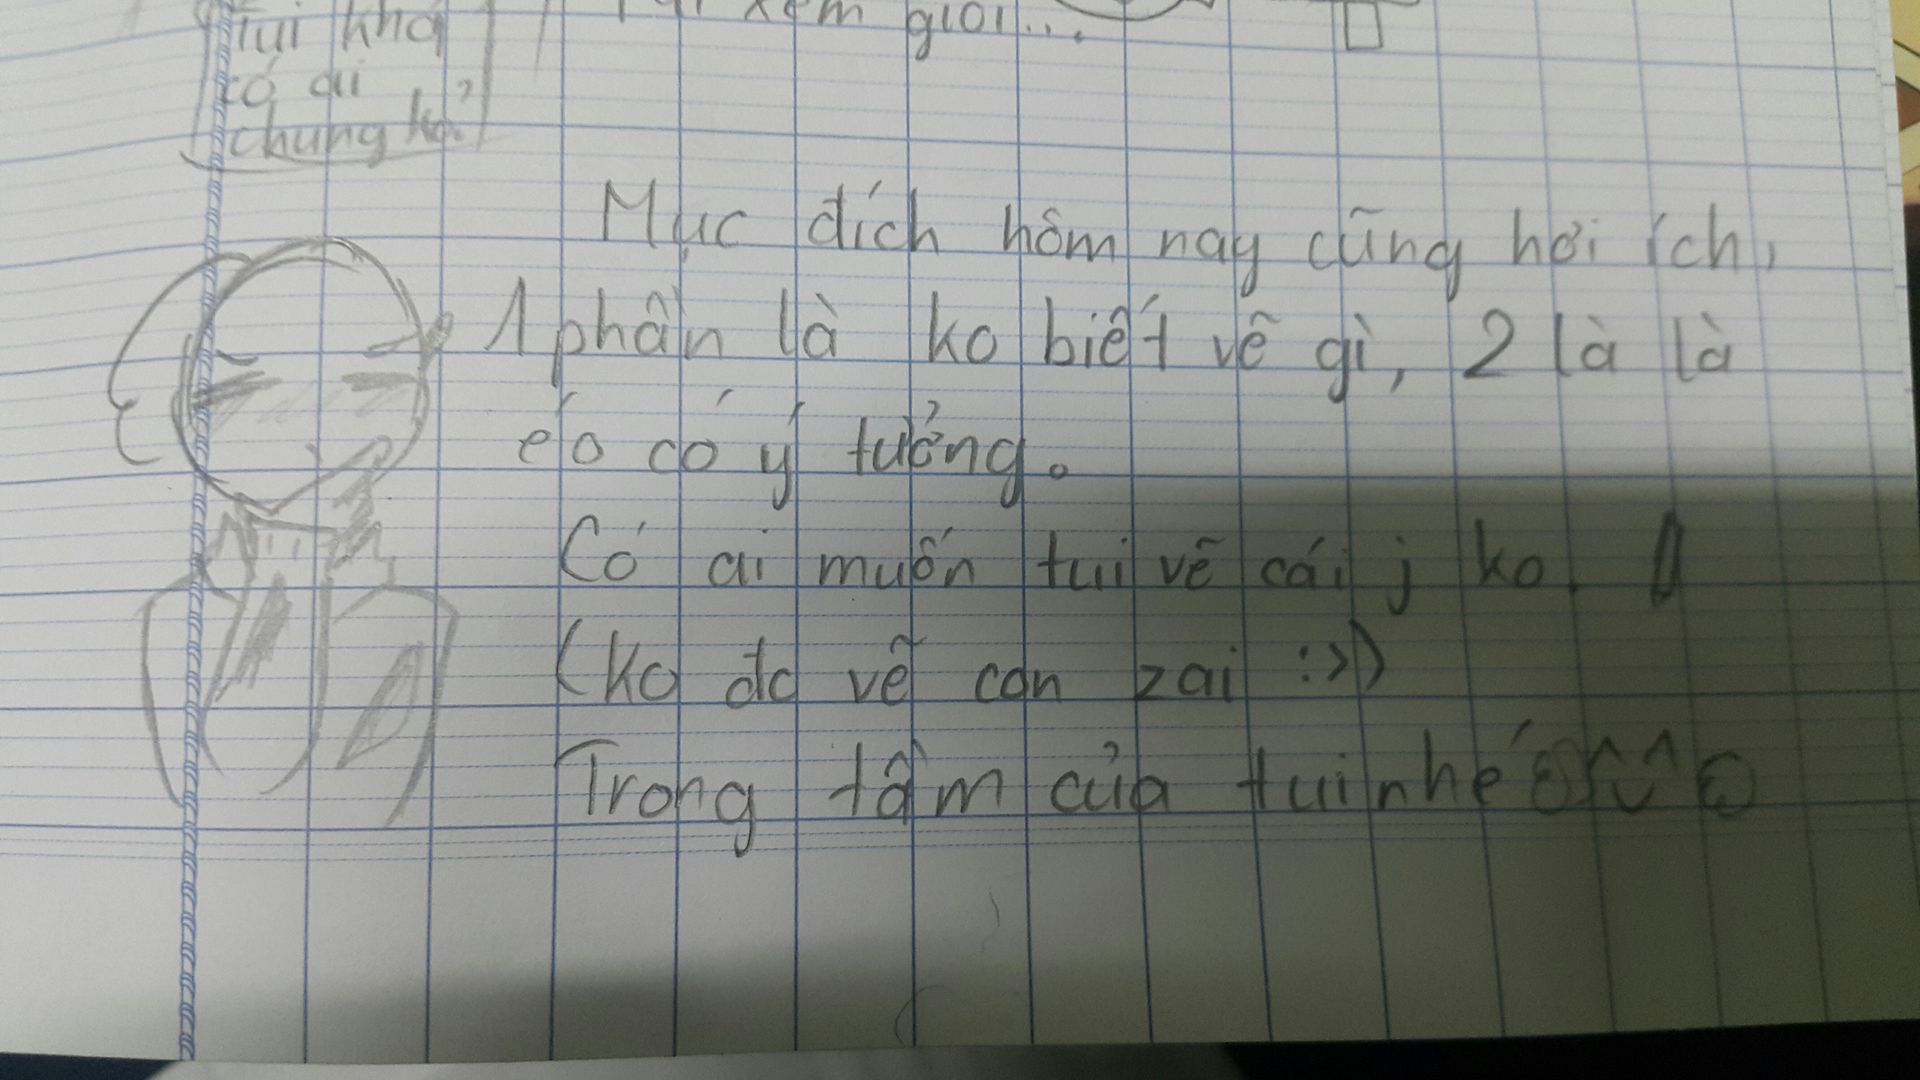 Tui khá
có ai
chung ko?
xém giỏi...
Mục đích hôm nay cũng hơi ích,
1 phần là ko biết vẽ gì, 2 là là
éo có ý tưởng.
Có ai muốn tui vẽ cái j ko.
(Ko dc vẽ con zai :>)
Trong tầm của tui nhé